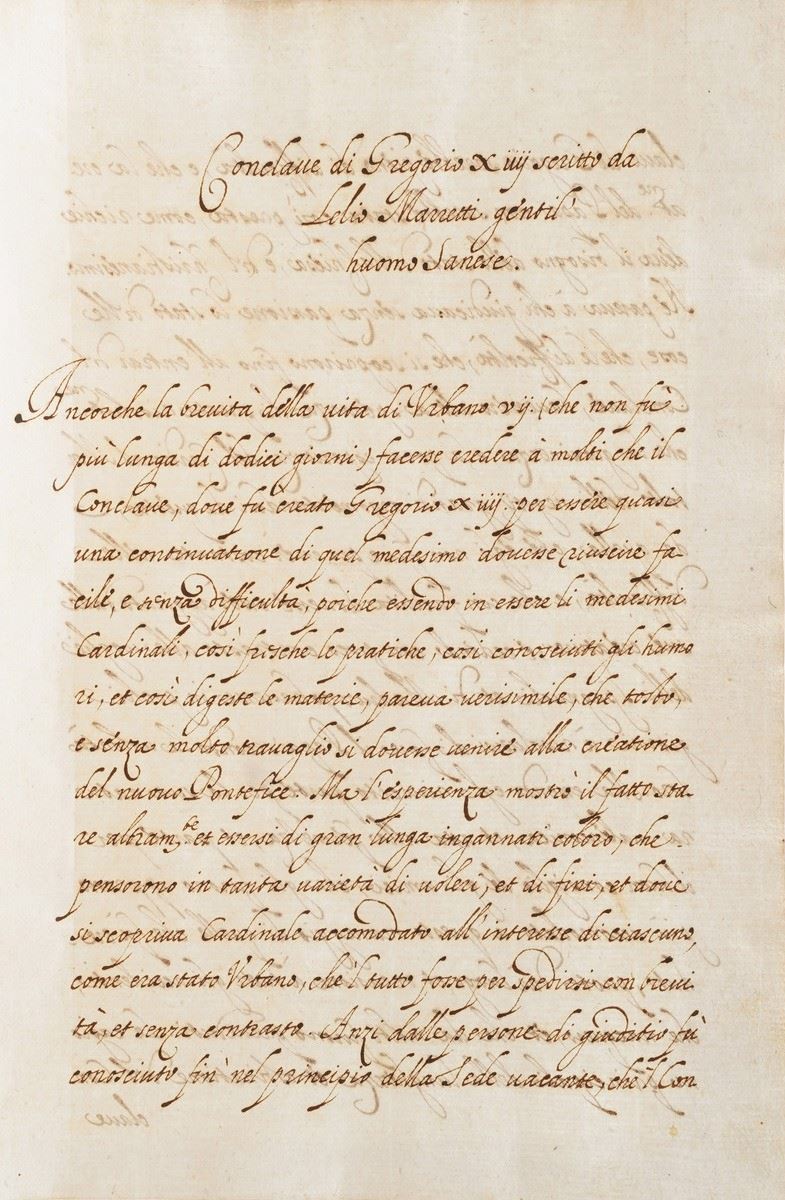 Conclaue di Gregorio xiiij scritto da
Lelio Marretti gentil'
huomo Sanese.
Ancorche la breuità della uita di Vrbano vij. (che non fù
più lunga di dodici giorni) facesse credere à molti che il
Conclaue, doue fù creato Gregorio xiiij. per essere quasi
una continuatione di quel medesimo douesse riuscire fa
cile, e senza difficultà, poiche essendo in essere li medesimi
Cardinali, così fresche le pratiche, così conosciuti gli humo
ri, et così digeste le materie, pareua uerisimile, che tosto,
e senza molto trauaglio si douesse uenire alla creatione
del nuouo Pontefice. Ma l'esperienza mostrò il fatto sta
re altram.te et essersi di gran lunga ingannati coloro, che
pensorono in tanta uarietà di uoleri, et di fini, et doue
si scopriua Cardinale accomodato all'interesse di ciascuno,
come era stato Vrbano, che'l tutto fosse per spedirsi con breui
tà, et senza contrasto. Anzi dalle persone di giuditio fù
conosciuto fin' nel principio della Sede uacante, che'l Con
claue